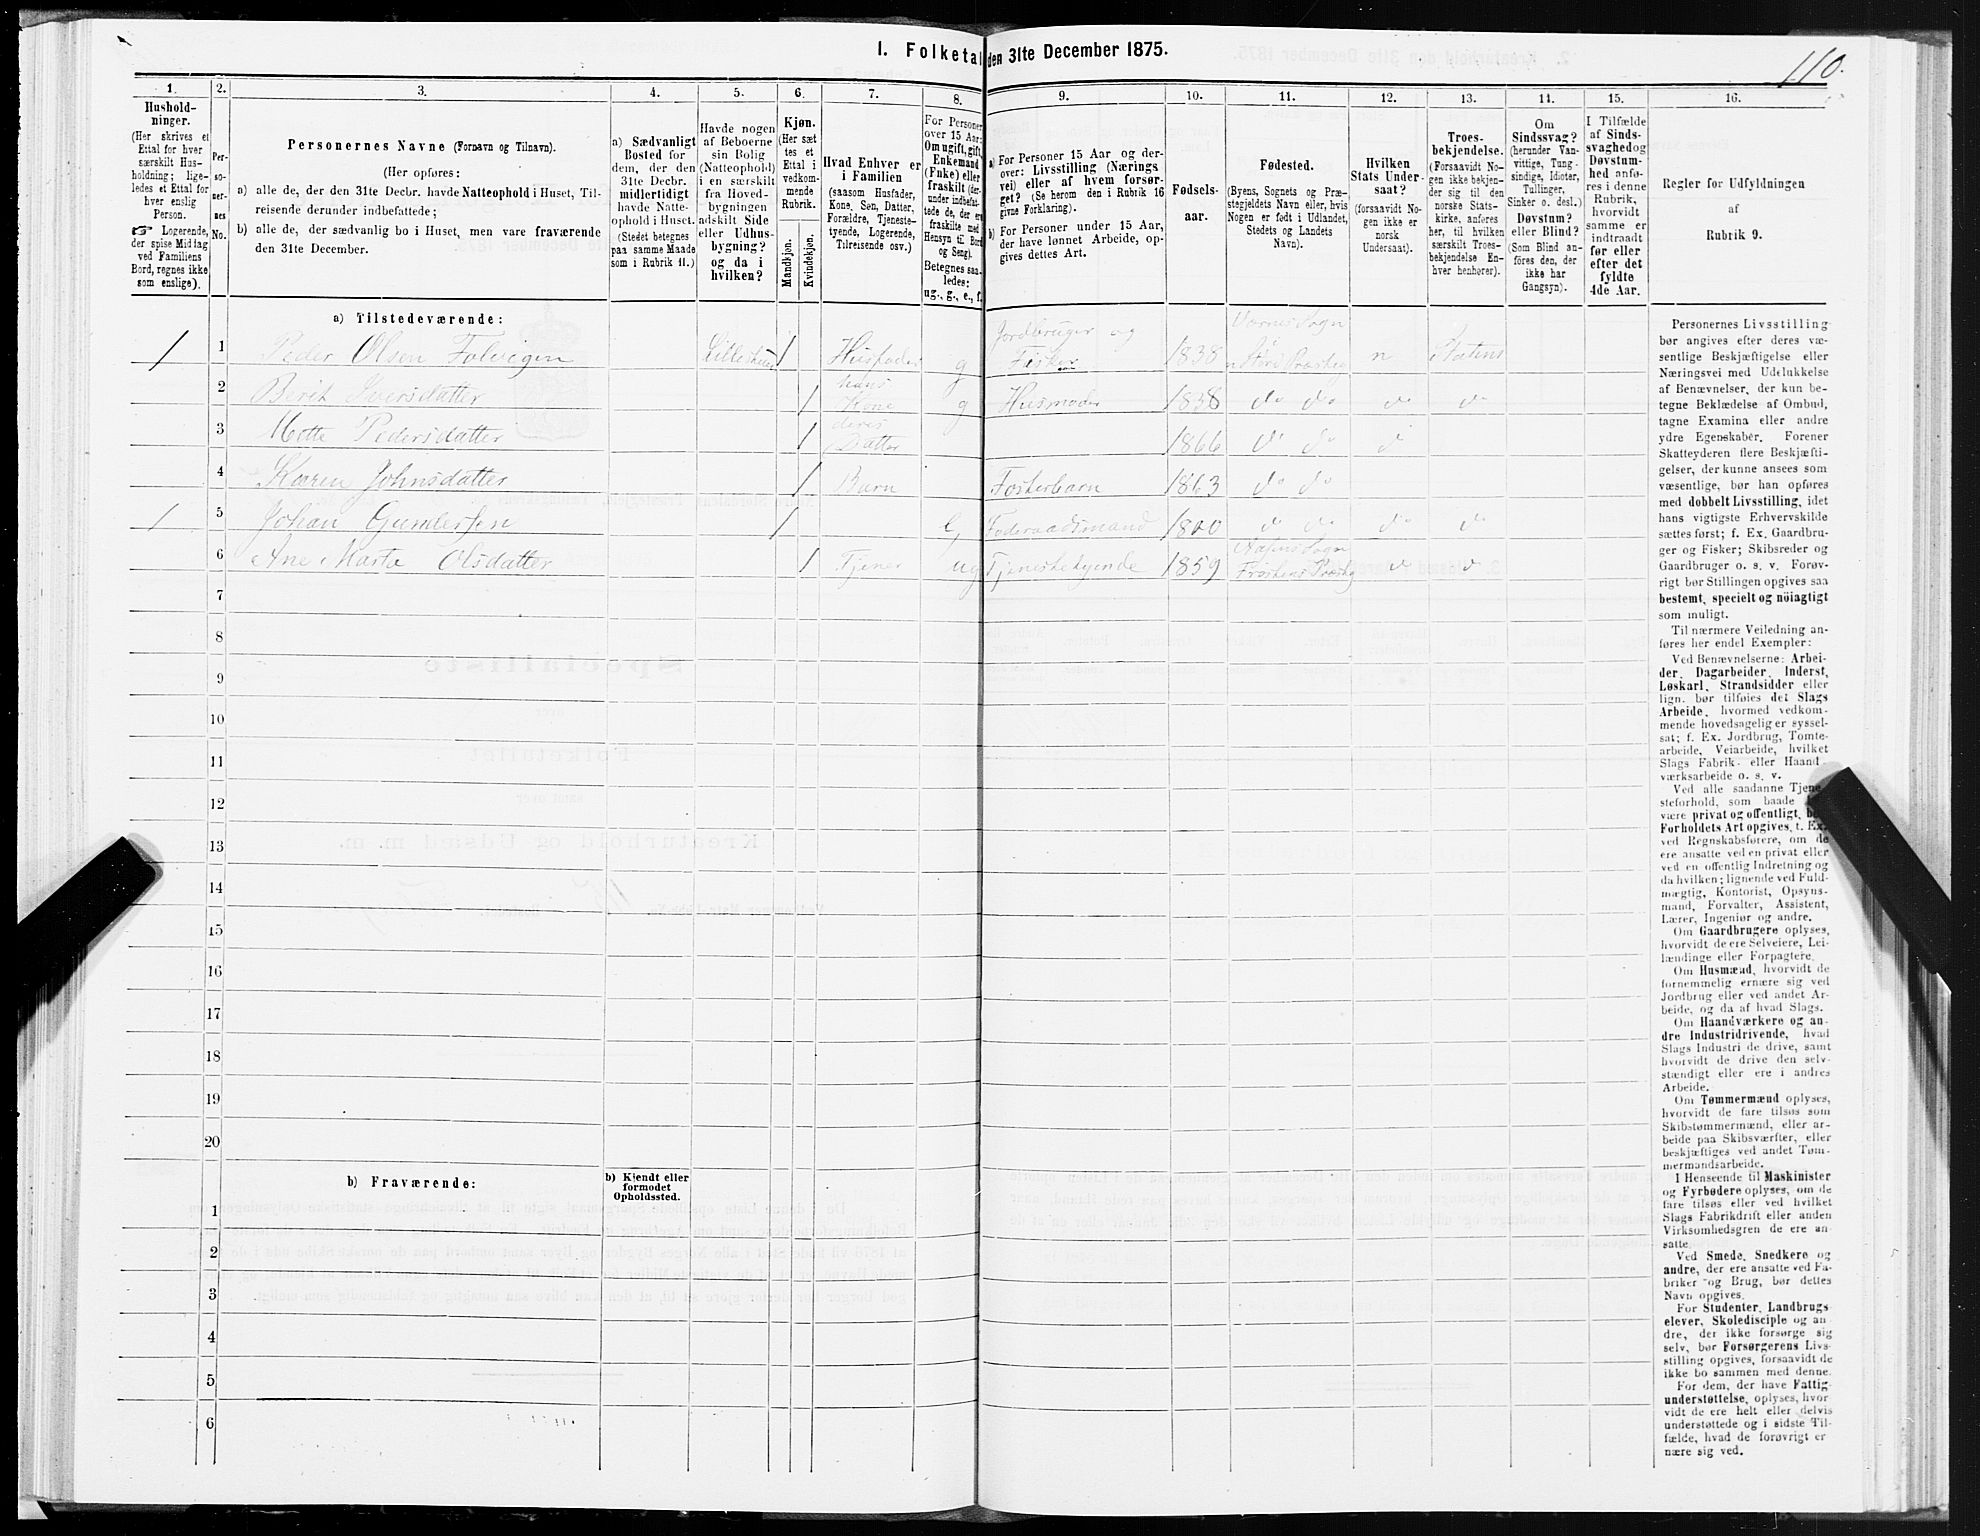 I. Folketal den 31te December 1875.
110.
1.
Hushold-
ninger.
(Her skrives et
Ettal for hver
særskilt Hus-
holdning; lige-
ledes et Ettal for
hver enslig
Person.
☞ Logerende,
der spise Middag
ved Familiens
Bord, regnes ikke
som enslige).
2.
Per-
so-
ner-
nes
No.
3.
Personernes Navne (Fornavn og Tilnavn).
(Her opføres:
a) alle de, der den 31te Decbr. havde Natteophold i Huset, Til-
reisende derunder indbefattede;
b) alle de, der sædvanlig bo i Huset, men vare fraværende
den 31te December.
4.
a) Sædvanligt
Bosted for
dem, der den
31te Decbr.
midlertidigt
havde Natte-
ophold i Huset.
(Stedet betegnes
paa samme Maade
som i Rubrik 11.)
5.
Havde nogen
af Beboerne
sin Bolig
(Natteophold)
i en særskilt
fra Hoved-
bygningen
adskilt Side
eller Udhus-
bygning?
og da i
hvilken?
6.
Kjøn.
(Her sæt
tes et
Ettal i
vedkom-
mende
Rubrik.
Mandkjøn.
Kvindekjøn.
7.
Hvad Enhver er
i Familien
(saasom Husfader,
Kone, Søn, Datter,
Forældre, Tjeneste-
tyende, Logerende,
Tilreisende osv.)
8.
For Personer
over 15 Aar:
Om ugift, gift,
Enkemand
(Enke) eller
fraskilt (der-
under indbefat-
tede de, der ere
fraskilte med
Hensyn til Bord
og Seng).
Betegnes saa-
ledes:
ug., g., e., f.
9.
a) For Personer 15 Aar og der-
over: Livsstilling (Nærings
vei) eller af hvem forsør-
get? (Se herom den i Rubrik 16
givne Forklaring).
b) For Personer under 15 Aar,
der have lønnet Arbeide, op-
gives dettes Art.
10.
Fødsels-
aar.
11.
Fødested.
(Byens, Sognets og Præ-
stegjeldets Navn eller, hvis
Nogen er født i Udlandet,
Stedets og Landets
Navn).
12.
Hvilken
Stats Under-
saat?
(forsaavidt No-
gen ikke er
norsk
Undersaat).
13.
Troes-
bekjendelse.
(Forsaavidt No-
gen ikke bekjen-
der sig til den
norske Stats-
kirke, anføres
her, til hvilken
særskilt Troes-
bekjendelse En-
hver henhører).
14.
Om
Sindssvag?
(herunder Van-
vittige, Tung-
sindige, Idioter,
Tullinger,
Sinker o. desl.)
Døvstum?
eller Blind?
(Som Blind an-
føres den, der
ikke har
Gangsyn).
15.
I Tilfælde
af Sinds-
svaghed og
Døvstum-
hed anfø-
res i denne
Rubrik,
hvorvidt
samme er
indtraadt
før eller
efter det
fyldte
4de Aar.
16.
Regler for Udfyldningen
af
Rubrik 9.
a) Tilstedeværende:
1 1 Peder Olsen Lillestuen 1 Husfader g Jordbruger og Fisker 1838 n Statens
2 Berit Iversdatter 1 hans Kone g Husmoder 1838 do do do do
3 Mette Pedersdatter 1 deres Datter 1866 do do do
4 Karen Johnsdatter 1 Barn Fosterbarn 1863 do do
1 5 Johan Gundersen 1 Foderaadsmand do do do do
6 Ane Marta Olsdatter 1 Tjener ug Tjenestetyende 1859 Frostens Præstg do do
7
8
9
10
11
12
13
14
15
16
17
18
19
20
b) Fraværende:
b) Kjendt eller
formodet
Opholdssted.
1
2
3
4
5
6
Personernes Livsstilling
bør angives efter deres væ-
sentlige Beskjæftigelse eller
Næringsvei med Udelukkelse
af Benævnelser, der kun be-
tegne Beklædelse af Ombud,
tagne Examina eller andre
ydre Egenskaber. Forener
Skatteyderen flere Beskjæfti-
gelser, der kunne ansees som
væsentlige, bør han opføres
med dobbelt Livsstilling, idet
hans vigtigste Erhvervskilde
sættes først; f. Ex. Gaardbru-
ger og Fisker; Skibsreder og
Gaardbruger o. s. v. Forøv-
rigt bør Stillingen opgives saa
bestemt, specielt og nöiagtigt
som muligt.
Til nærmere Veiledning an-
føres her endel Exempler:
Ved Benævnelserne: Arbei-
der, Dagarbeider, Inderst,
Løskarl, Strandsidder eller
lign. bør tilføies det Slags
Arbeide, hvormed vedkom-
mende hovedsagelig er syssel-
sat; f. Ex. Jordbrug, Tomte-
arbeide, Veiarbeide, hvilket
Slags Fabrik- eller Haand-
værksarbeide o. s. v.
Ved alle saadanne Tjene-
steforhold, som baade
være privat og offentligt, bør
Forholdets Art opgives, t. Ex.
ved Regnskabsførere, om de
ere ansatte ved en privat eller
ved en offentlig Indretning og
da hvilken; lignende ved Fuld-
mægtig, Kontorist, Opsyns-
mand, Forvalter, Assistent,
Lærer, Ingeniør og andre.
Om Gaardbrugere oplyses,
hvorvidt de ere Selveiere, Lei-
lændinge eller Forpagtere.
Om Husmænd, hvorvidt de
fornemmelig ernære sig ved
Jordbrug eller ved andet Ar-
beide, og da af hvad Slags.
Om Haandværkere og an-
dre Industridrivende, hvad
Slags Industri de drive, samt
hvorvidt de drive den selv-
stændigt eller ere i andres
Arbeide.
Om Tømmermænd oplyses,
hvorvidt de fare tilsøs som
Skibstømmermænd, eller ar-
beide paa Skibsværfter, eller
beskjæftiges ved andet Tøm-
mermandsarbeide.
I Henseende til Maskinister
og Fyrbødere oplyses, om de
fare tilsøs eller ved hvilket
Slags Fabrikdrift eller anden
Virksomhedsgren de ere an-
satte.
Ved Smede, Snedkere og
andre, der ere ansatte ved Fa-
briker og Brug, bør dettes
Navn opgives.
For Studenter, Landbrugs-
elever, Skoledisciple og an-
dre, der ikke forsørge sig
selv, bør Forsørgerens Livs-
stilling opgives, forsaavidt de
ikke bo sammen med denne.
For dem, der have Fattig-
understøttelse, oplyses, hvor-
vidt de ere helt eller delvis
understøttede og i sidste Til-
fælde, hvad de forøvrigt er
nære sig ved.